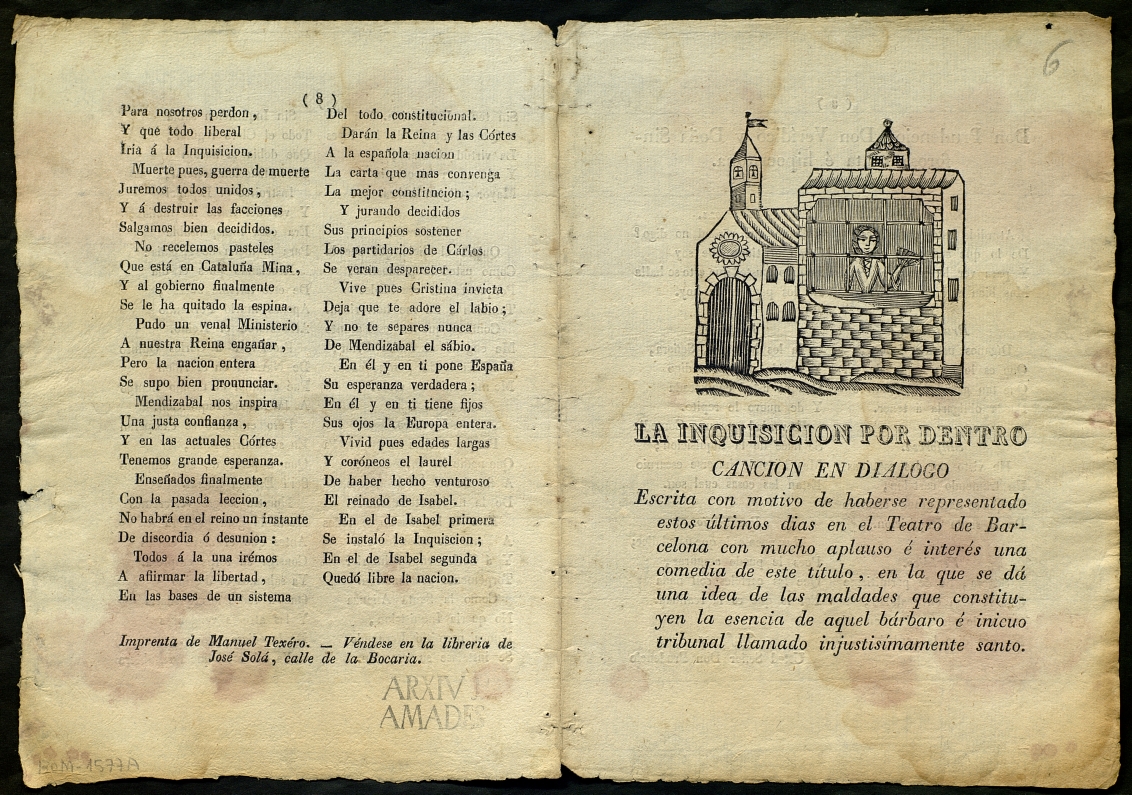 ( 8 )
Para nosotros perdon,
Y que todo liberal
Iria á la Inquisicion.
Muerte pues, guerra de muerte
Juremos todos unidos,
Y á destruir las facciones
Salgamos bien decididos.
No recelemos pasteles
Que está en Cataluña Mina,
Y al gobierno finalmente
Se le ha quitado la espina.
Pudo un venal Ministerio
A nuestra Reina engañar,
Pero la nacion entera
Se supo bien pronunciar.
Mendizabal nos inspira
Una justa confianza,
Y en las actuales Córtes
Tenemos grande esperanza.
Enseñados finalmente
Con la pasada leccion,
No habrá en el reino un instante
De discordia ó desunion:
Todos á la una irémos
A afiirmar la libertad,
En las bases de un sistema
Del todo constitucional.
Darán la Reina y las Córtes
A la española nacion
La carta que mas convenga
La mejor constitucion;
Y jurando decididos
Sus principios sostener
Los partidarios de Cárlos
Se veran desparecer.
Vive pues Cristina invicta
Deja que te adore el labio;
Y no te separes nunca
De Mendizabal el sábio.
En él y en ti pone España
Su esperanza verdadera;
En él y en ti tiene fijos
Sus ojos la Europa entera.
Vivid pues edades largas
Y coróneos el laurel
De haber hecho venturoso
El reinado de Isabel.
En el de Isabel primera
Se instaló la Inquiscion;
En el de Isabel segunda
Quedó libre la nacion.
Imprenta de Manuel Texéro. — Véndese en la libreria de
José Solá, calle de la Bocaria.
ARXIU J.
AMADES
BOM-1577A
6
LA INQUISICION POR DENTRO
CANCION EN DIALOGO
Escrita con motivo de haberse representado
estos últimos dias en el Teatro de Bar-
celona con mucho aplauso é interés una
comedia de este título, en la que se dá
una idea de las maldades que constitu-
yen la esencia de aquel bárbaro é inicuo
tribunal llamado injustisímamente santo.